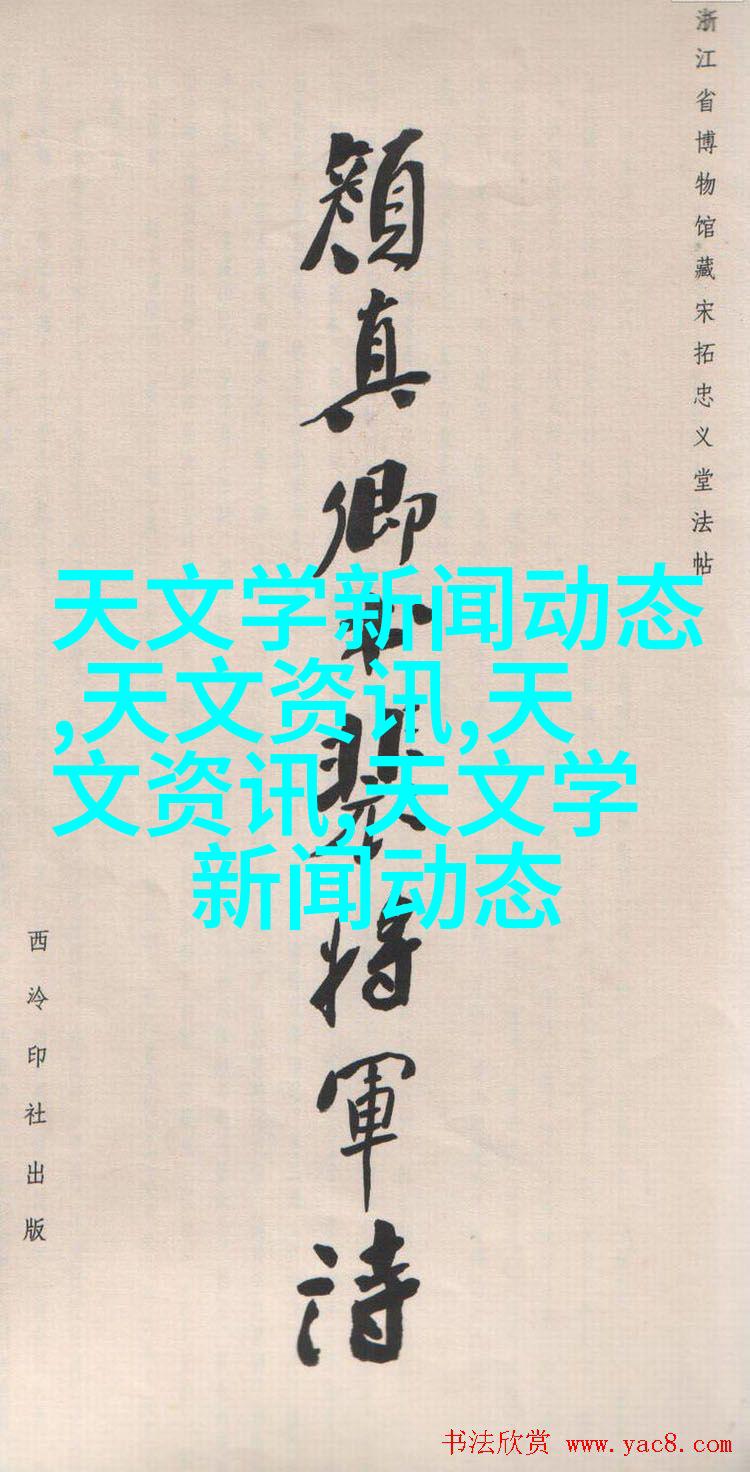 浙江省博物馆藏宋拓忠义堂法帖
颜真卿书裴将军诗
天文学新闻动态
,天文资讯,天
文资讯,天文学
新闻动态
西泠印社出版
书法欣赏 www.yac8.com